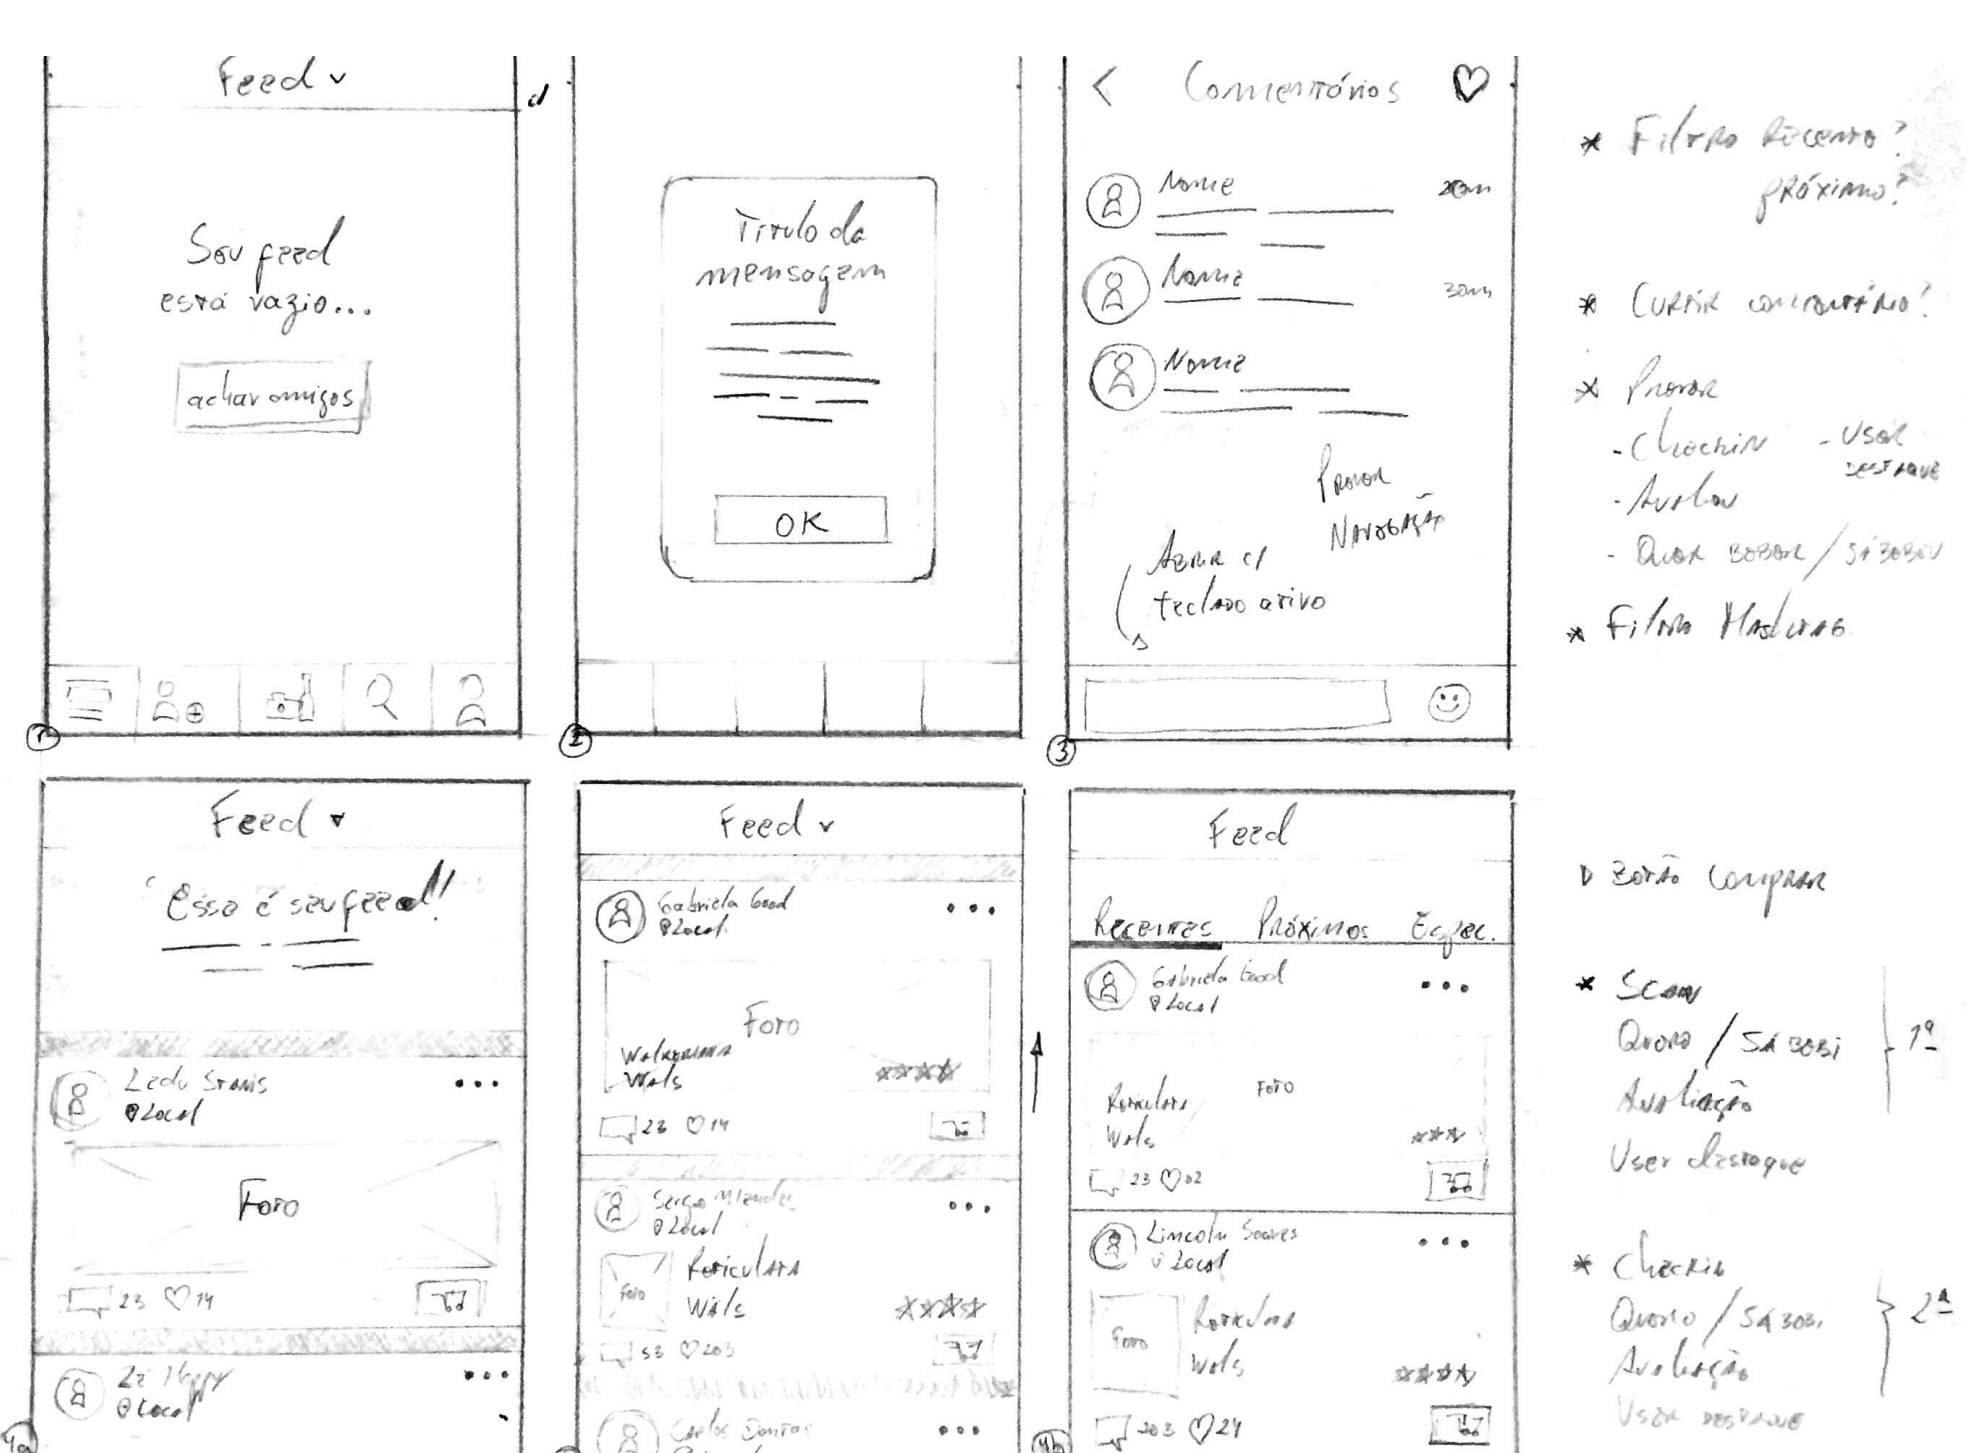 Feed
Seu feed
está vazio...
achar amigos
1
Título da
mensagem
OK
2
Comentários
Nome
20m
Nome
30m
Nome
Provar
Navegação
Abrir c/
teclado ativo
3
* Filtro Recente?
próximo?
* Curtir comentário?
* Provar
- Checkin
- User
destaque
- Avaliar
- Quer beber / já bebeu
Feed
Esse é seu feed!
Local
Foto
23 14
Local
4a
Feed
Gabriela Good
Local
Foto
Wals
23 14
Sergio Mendes
Local
Foto
Wals
53 203
Carlos
Feed
Recentes Próximos Espec.
Gabriela Good
Local
Foto
Wals
23 02
Lincoln Soares
Local
Foto
Wals
203 24
4b
Botão comprar
* Scan
Quero / Já bebi
Avaliação
User destaque
1ª
* Checkin
Quero / Já bebi
Avaliação
User destaque
2ª